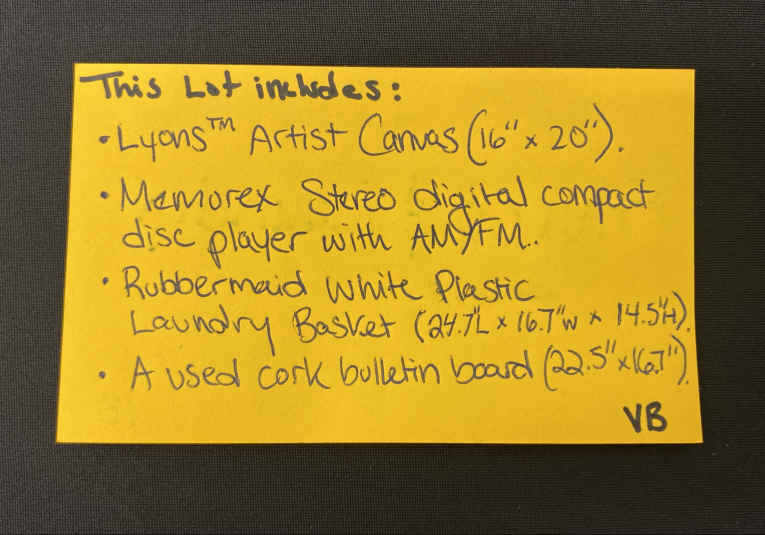 This Lot includes:
• Lyons™ Artist Canvas (16" x 20").
• Memorex Stereo digital compact
disc player with AM/FM..
• Rubbermaid White Plastic
Laundry Basket (24.7"L x 16.7"W x 14.5"H).
• A used cork bulletin board (22.5"x16.7").
VB